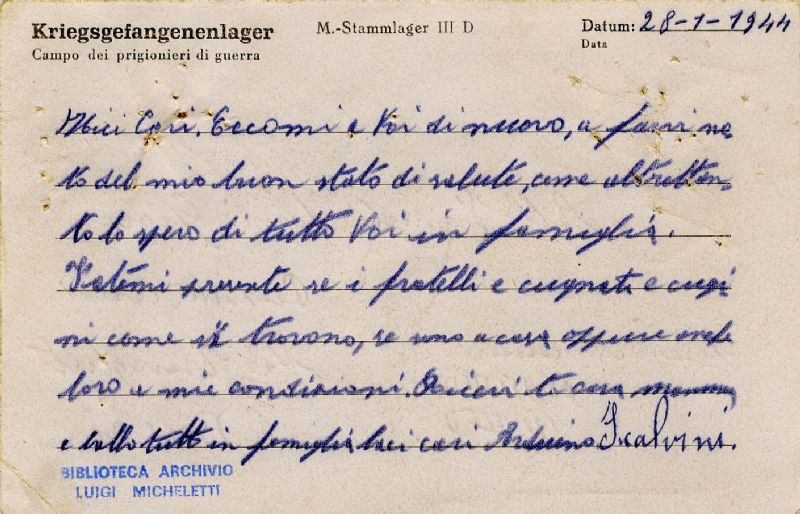 Kriegsgefangenenlager M.-Stammlager III D Datum: 28-1-1944
Campo dei prigionieri di guerra Data
Miei Cari. Eccomi a Voi di nuovo, a farvi no
to del mio buon stato di salute, come altrettan
to lo spero di tutto Voi in famiglia.
presente se i fratelli e cugnati e cugi
ni come si trovano, se sono a casa oppure
loro a mie condizioni. te cara mamma
e tutti in famiglia baci cari Arduino Scalvini.
BIBLIOTECA ARCHIVIO
LUIGI MICHELETTI